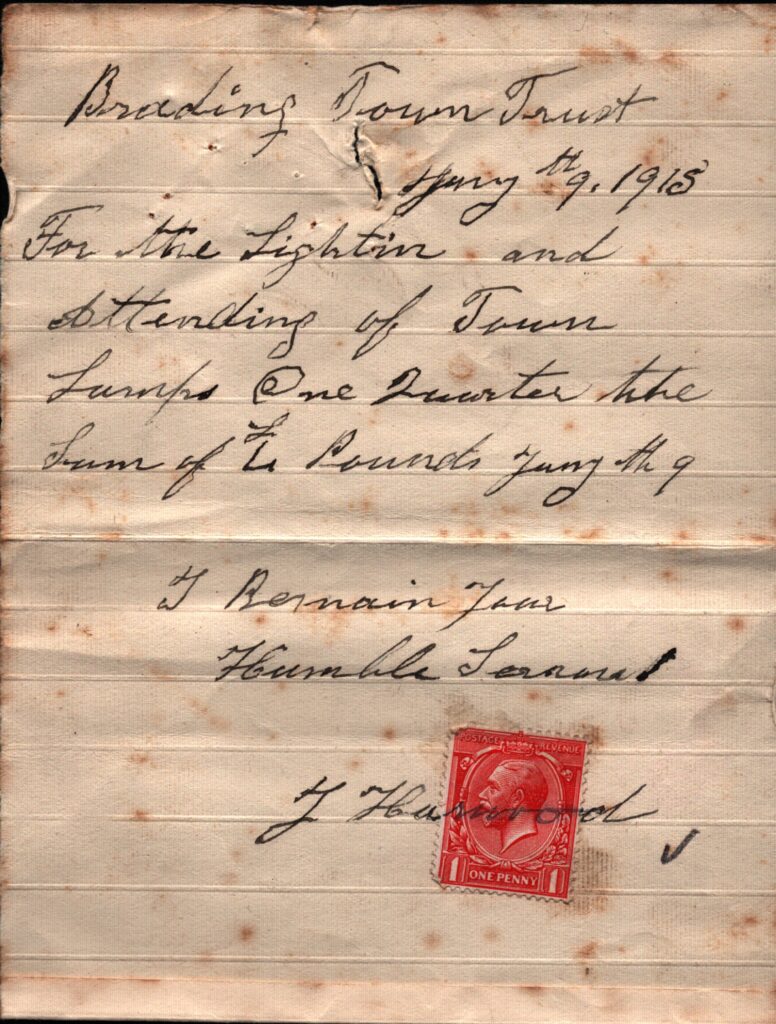 Brading Town Trust
Jany th 9. 1915
For the Lightin and
Attending of Town
Lamps One Quarter the
Sum of Pounds Jany th 9
I Remain Your
Humble Servant
POSTAGE REVENUE
Harwood
1 ONE PENNY 1